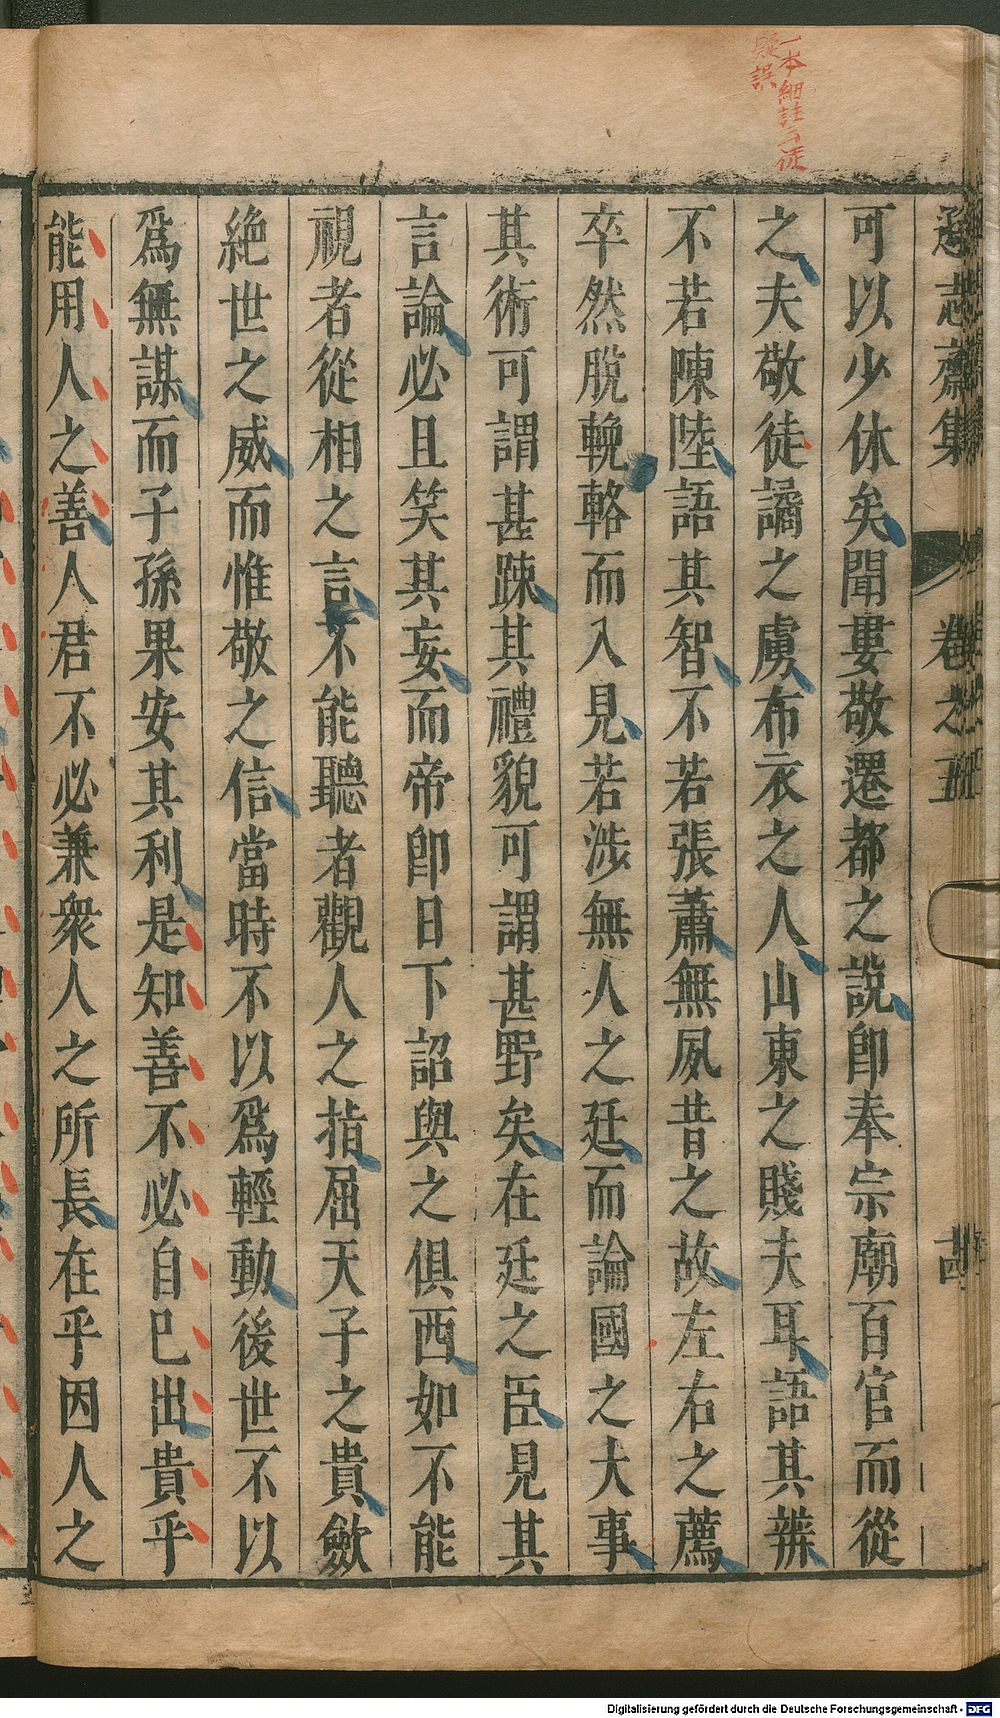 一本細註云徒
疑誤
遜志齋集 卷之五 十四
可以少休矣聞婁敬遷都之說卽奉宗廟百官而從
之夫敬徒謫之虜布衣之人山東之賤夫耳語其辨
不若陳陸語其智不若張蕭無夙昔之故左右之薦
卒然脫輓輅而入見若涉無人之廷而論國之大事
其術可謂甚踈其禮貌可謂甚野矣在廷之臣見其
言論必且笑其妄而帝卽日下詔與之俱西如不能
視者從相之言不能聽者觀人之指屈天子之貴斂
絶世之威而惟敬之信當時不以爲輕動後世不以
爲無謀而子孫果安其利是知善不必自己出貴乎
能用人之善人君不必兼衆人之所長在乎因人之
Digitalisierung gefördert durch die Deutsche Forschungsgemeinschaft - DFG